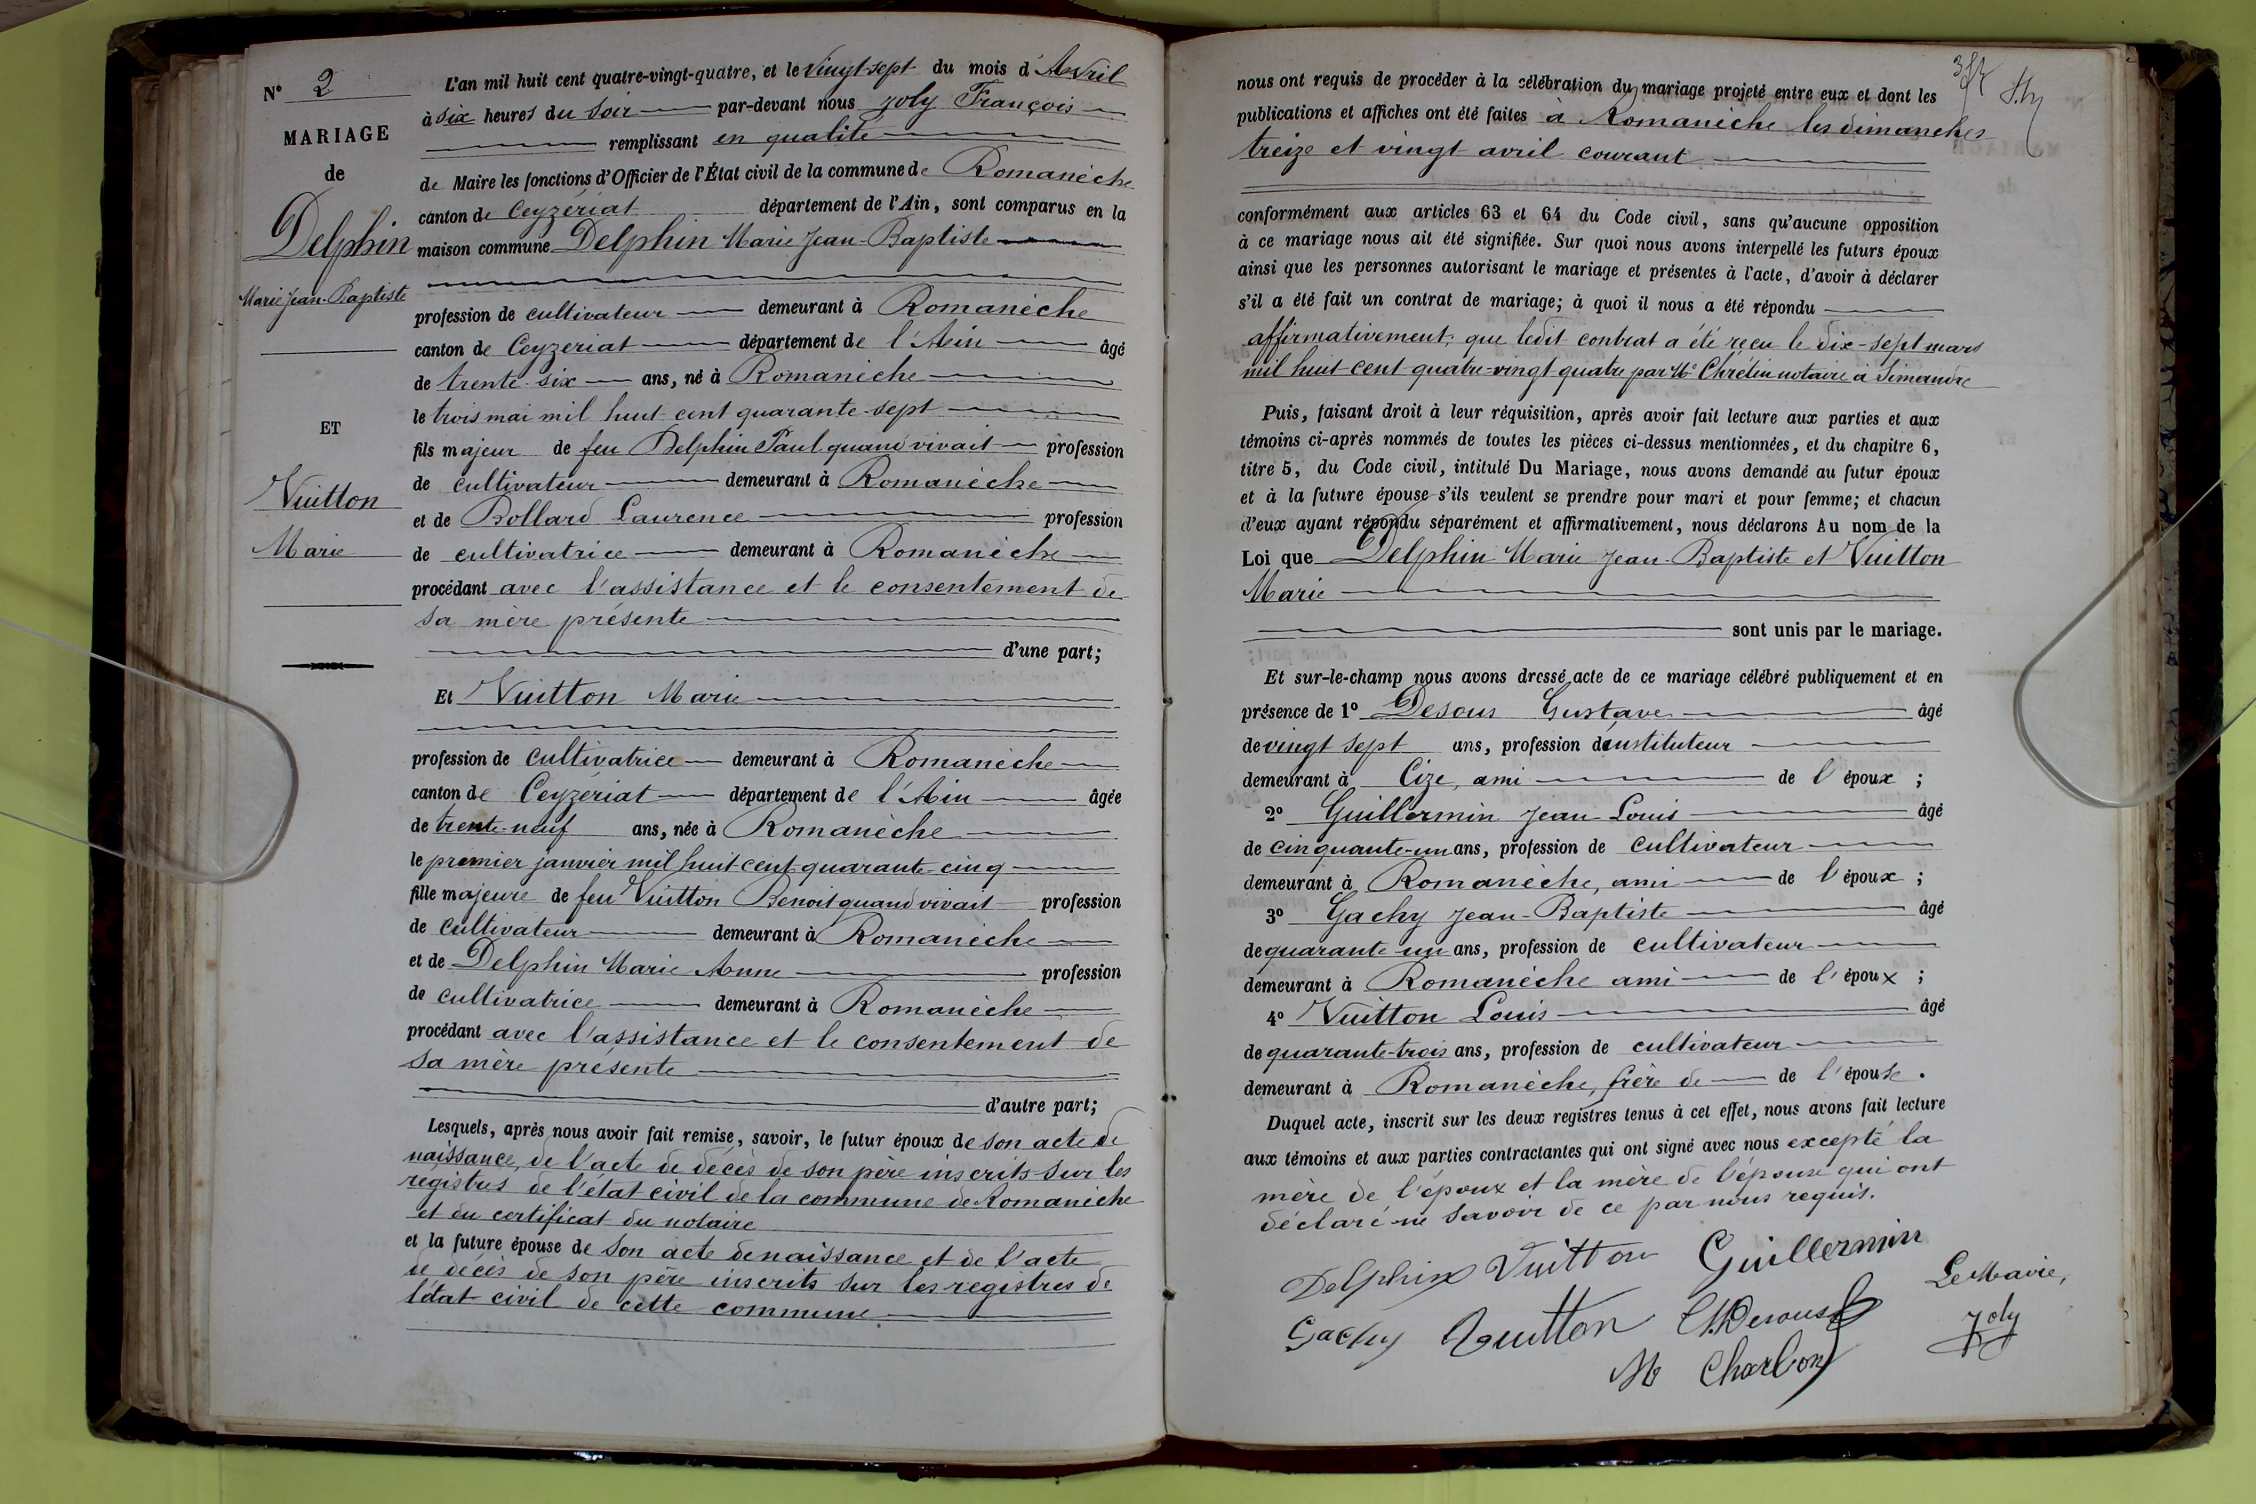 N° 2
MARIAGE
de
Delphin
Marie Jean-Baptiste
ET
Vuitton
Marie
L'an mil huit cent quatre-vingt-quatre, et le Vingt-sept du mois d'Avril
à six heures du soir par-devant nous Joly François
remplissant en qualité
de Maire les fonctions d'Officier de l'État civil de la commune de Romanèche
canton de Ceyzériat département de l'Ain, sont comparus en la
maison commune Delphin Marie Jean-Baptiste
profession de cultivateur demeurant à Romanèche
canton de Ceyzériat département de l'Ain âgé
de trente-six ans, né à Romanèche
le trois mai mil huit cent quarante-sept
fils majeur de feu Delphin Paul quand vivait profession
de cultivateur demeurant à Romanèche
et de Bollard Laurence profession
de cultivatrice demeurant à Romanèche
procédant avec l'assistance et le consentement de
sa mère présente
d'une part;
Et Vuitton Marie
profession de cultivatrice demeurant à Romanèche
canton de Ceyzériat département de l'Ain âgée
de trente-neuf ans, née à Romanèche
le premier janvier mil huit cent quarante-cinq
fille majeure de feu Vuitton Benoit quand vivait profession
de cultivateur demeurant à Romanèche
et de Delphin Marie Anne profession
de cultivatrice demeurant à Romanèche
procédant avec l'assistance et le consentement de
sa mère présente
d'autre part;
Lesquels, après nous avoir fait remise, savoir, le futur époux de son acte de
naissance, de l'acte de décès de son père inscrits sur les
registres de l'état civil de la commune de Romanèche
et du certificat du notaire
et la future épouse de son acte de naissance et de l'acte
de décès de son père inscrits sur les registres de
l'état civil de cette commune
nous ont requis de procéder à la célébration du mariage projeté entre eux et dont les
publications et affiches ont été faites à Romanèche les dimanches
treize et vingt avril courant
conformément aux articles 63 et 64 du Code civil, sans qu'aucune opposition
à ce mariage nous ait été signifiée. Sur quoi nous avons interpellé les futurs époux
ainsi que les personnes autorisant le mariage et présentes à l'acte, d'avoir à déclarer
s'il a été fait un contrat de mariage; à quoi il nous a été répondu
affirmativement; que ledit contrat a été reçu le dix-sept mars
mil huit cent quatre-vingt quatre par Me Chrétin notaire à Simandre
Puis, faisant droit à leur réquisition, après avoir fait lecture aux parties et aux
témoins ci-après nommés de toutes les pièces ci-dessus mentionnées, et du chapitre 6,
titre 5, du Code civil, intitulé Du Mariage, nous avons demandé au futur époux
et à la future épouse s'ils veulent se prendre pour mari et pour femme; et chacun
d'eux ayant répondu séparément et affirmativement, nous déclarons Au nom de la
Loi que Delphin Marie Jean-Baptiste et Vuitton
Marie
sont unis par le mariage.
Et sur-le-champ nous avons dressé acte de ce mariage célébré publiquement et en
présence de 1° Desous Gustave âgé
de vingt sept ans, profession d'instituteur
demeurant à Cize, ami de l'époux;
2° Guillermin Jean Louis âgé
de cinquante-un ans, profession de cultivateur
demeurant à Romanèche, ami de l'époux;
3° Gachy Jean-Baptiste âgé
de quarante-un ans, profession de cultivateur
demeurant à Romanèche ami de l'époux;
4° Vuitton Louis âgé
de quarante-trois ans, profession de cultivateur
demeurant à Romanèche, frère de de l'épouse.
Duquel acte, inscrit sur les deux registres tenus à cet effet, nous avons fait lecture
aux témoins et aux parties contractantes qui ont signé avec nous excepté la
mère de l'époux et la mère de l'épouse qui ont
déclaré ne savoir de ce par nous requis.
Delphin Vuitton Guillermin
Le Maire,
Gachy Vuitton Desous Joly
M Charbon